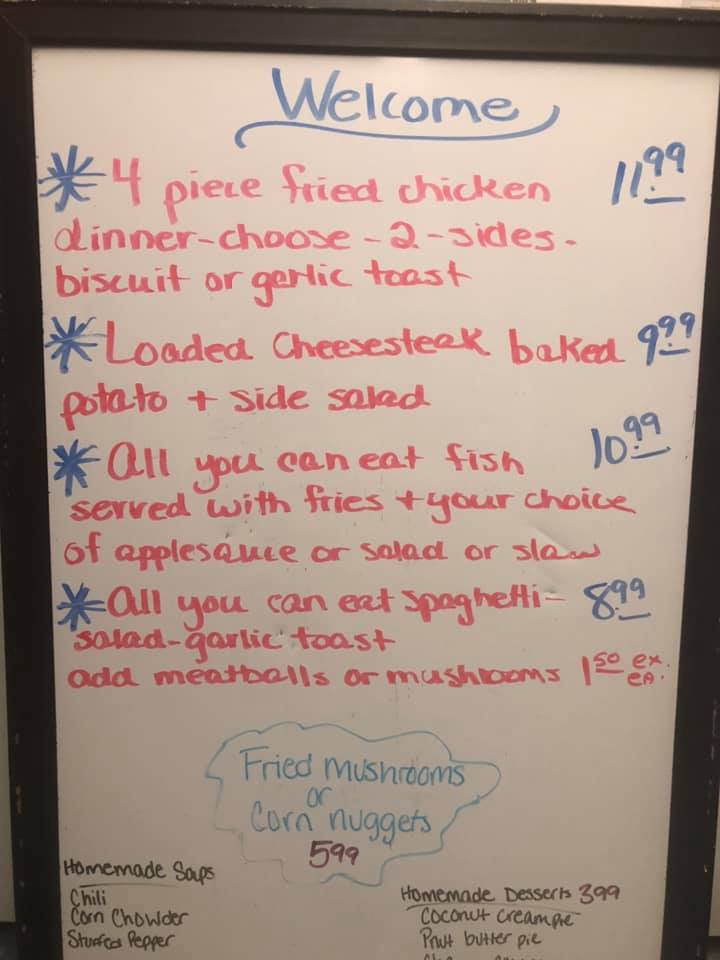 Welcome
* 4 piece fried chicken 11.99
dinner-choose-2-sides-
biscuit or garlic toast
* Loaded Cheesesteak baked 9.99
potato + side salad
* All you can eat fish 10.99
served with fries + your choice
of applesauce or salad or slaw
* All you can eat spaghetti- 8.99
salad-garlic toast
add meatballs or mushrooms 1.50 ex. ea.
Fried mushrooms
or
Corn nuggets
599
Homemade Soups
Chili
Corn Chowder
Stuffed Pepper
Homemade Desserts 399
Coconut creampie
Pnut butter pie